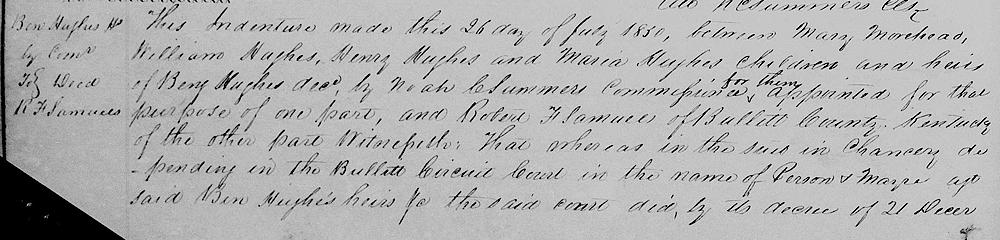 Att N C Summers Clk
Ben Hughes Hs
by Comr
To } Deed
R F Samuels
This Indenture made this 26 day of July 1850, between Mary Morehead,
William Hughes, Henry Hughes and Maria Hughes children and heirs
of Benj Hughes decd, by Noah C Summers Commissioner for them appointed for that
purpose of one part, and Robert F Samuels of Bullitt County Kentucky
of the other part Witnesseth: That whereas in the suit in Chancery de
-pending in the Bullitt Circuit Court in the name of Person & Mayre agt
said Ben Hughes heirs &c the said court did, by its decree of 21 Decer